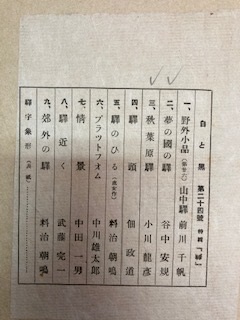 白と黒 第二十四號 特輯「驛」
一、野外小品(版畫七) 山中驛 前川千帆
二、夢の國の驛 谷中安規
三、秋葉原驛 小川龍彦
四、驛頭 佃政道
五、驛のひる(改定作) 料治朝鳴
六、プラットフォム 中川雄太郎
七、情景 中田一男
八、驛近く 武藤完一
九、郊外の驛 料治朝鳴
驛字象形(表紙)